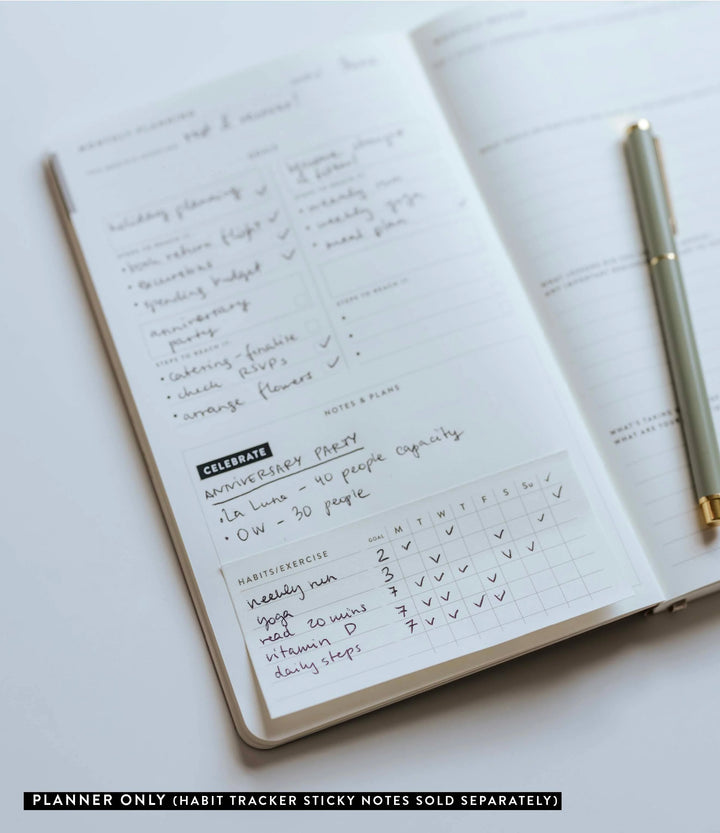 MONTHLY PLANNING
rest & recover!
GOALS
holiday planning ✓
STEPS TO REACH IT:
• book return flight ✓
• excursions ✓
• spending budget ✓
anniversary
party
STEPS TO REACH IT:
• catering - finalise ✓
• check RSVPs ✓
• arrange flowers ✓
STEPS TO REACH IT:
• weekly run
• weekly yoga
• meal plan ✓
STEPS TO REACH IT:
•
•
•
NOTES & PLANS
CELEBRATE
ANNIVERSARY PARTY
• La Luna - 40 people capacity
• OW - 30 people
HABITS/EXERCISE GOAL M T W T F S Su ✓
weekly run 2 ✓ ✓ ✓
yoga 3 ✓ ✓ ✓
read 20 mins 7 ✓ ✓ ✓ ✓ ✓
vitamin D 7 ✓ ✓ ✓
daily steps 7 ✓ ✓ ✓ ✓
WHAT'S TAKING
WHAT ARE YOUR
PLANNER ONLY (HABIT TRACKER STICKY NOTES SOLD SEPARATELY)